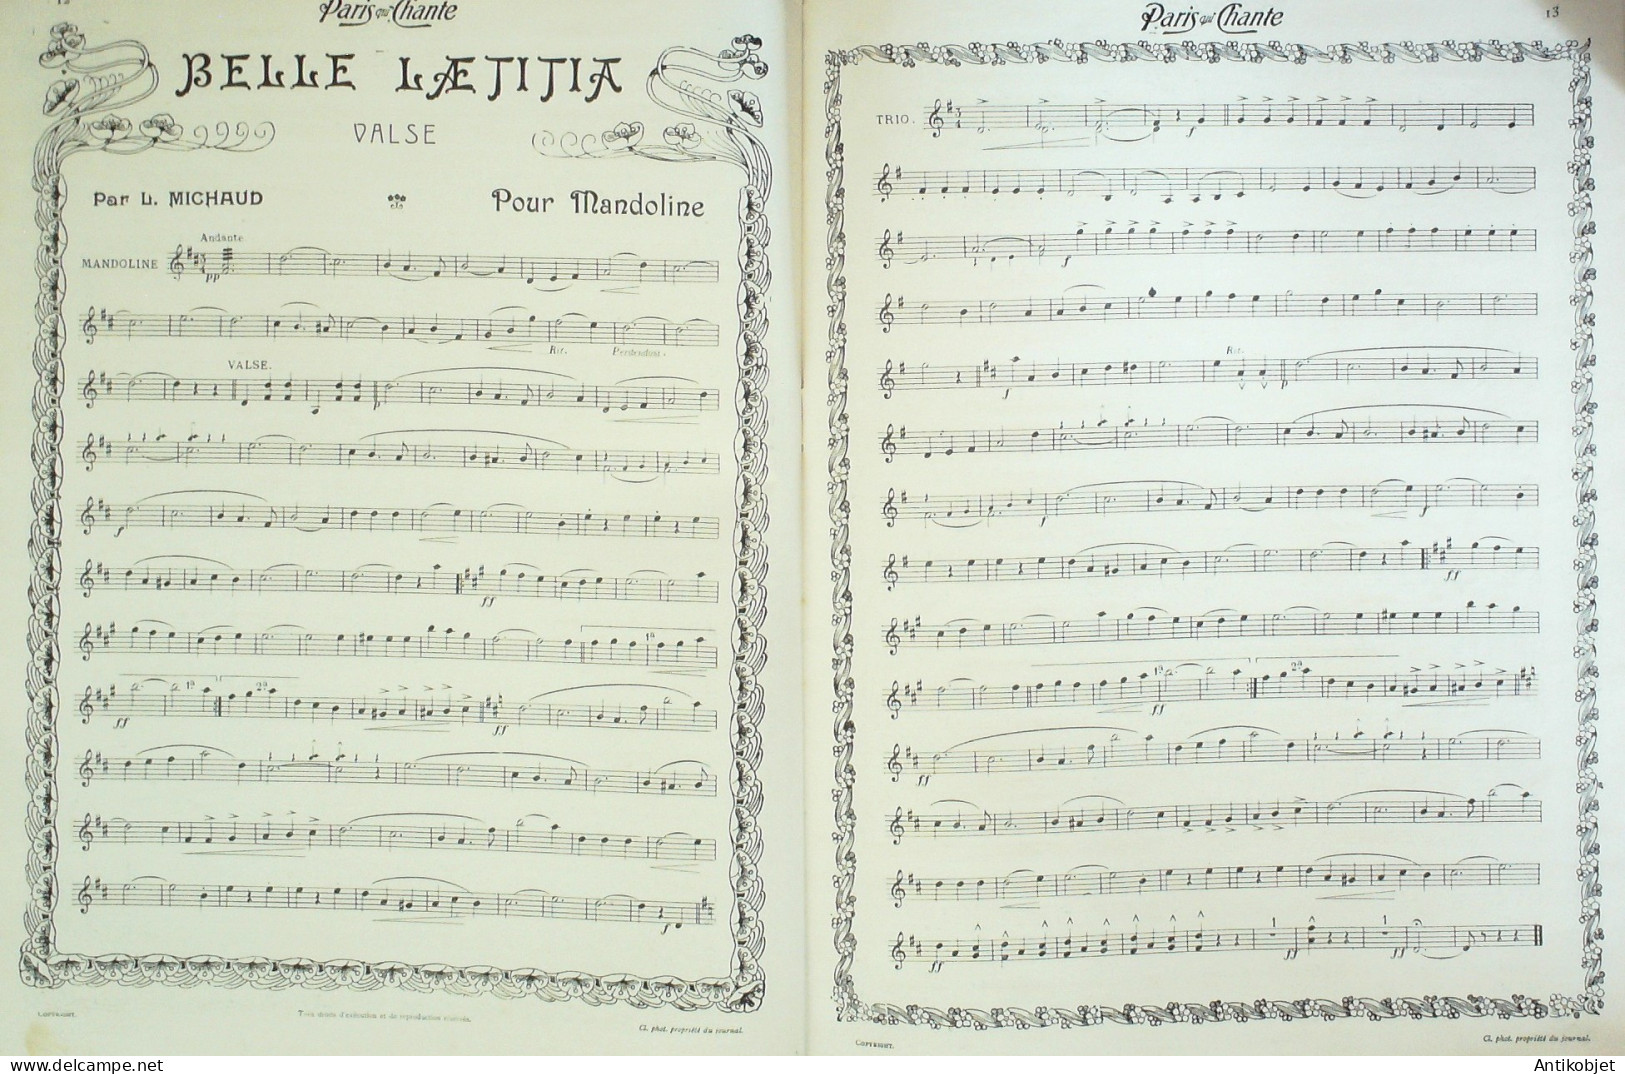 12
Paris qui Chante
BELLE LÆTITIA
VALSE
Par L. MICHAUD
Pour Mandoline
Andante
MANDOLINE
pp
Rit.
Perdendosi.
VALSE.
p
f
ff
1ª
ff
1ª
2ª
ff
f
COPYRIGHT.
Tous droits d'exécution et de reproduction réservés.
Cl. phot. propriété du journal.
Paris qui Chante
13
TRIO.
f
Rit.
f
p
f
f
ff
1ª
2ª
ff
ff
1
1
ff
ff
COPYRIGHT.
Cl. phot. propriété du journal.
Antikobjet